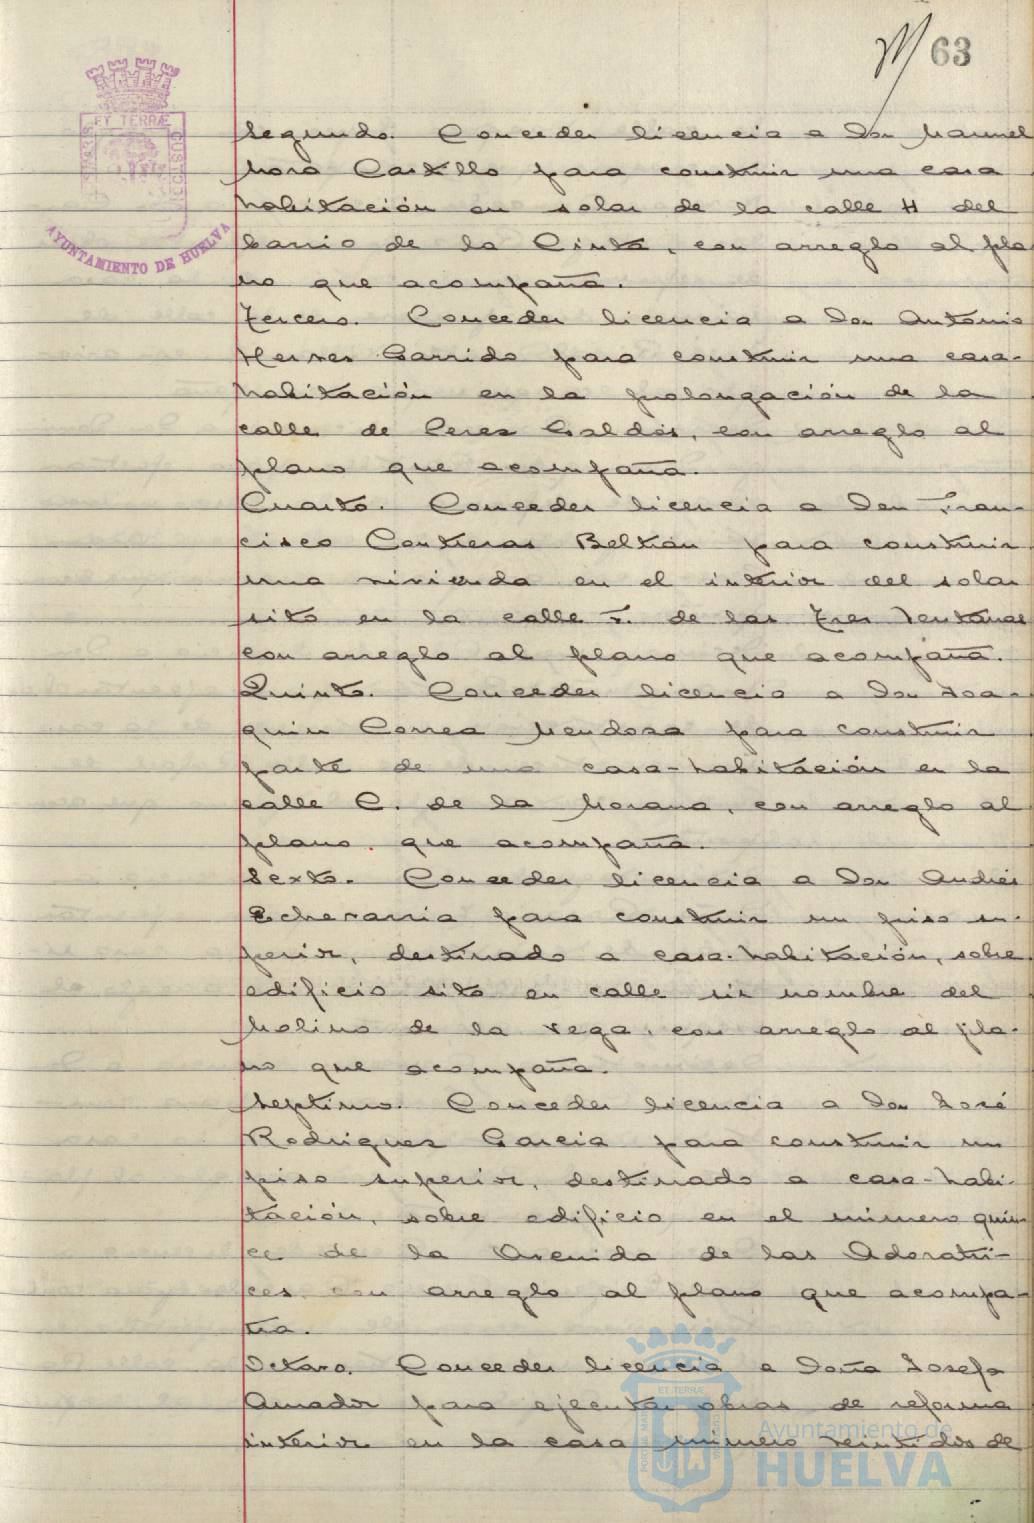 63
ET TERRÆ
CUSTODIA
AYUNTAMIENTO DE HUELVA
Segundo. Conceder licencia a Don Manuel
Mora Castillo para construir una casa
habitación en solar de la calle H del
barrio de la Cinta, con arreglo al pla
no que acompaña.
Tercero. Conceder licencia a Don Antonio
Garrido para construir una casa-
habitación en la prolongación de la
calle de Perez Galdós, con arreglo al
plano que acompaña.
Cuarto. Conceder licencia a Don Fran-
cisco Contreras Beltrán para construir
una vivienda en el interior del solar
sito en la calle F. de las Tres Ventanas
con arreglo al plano que acompaña.
Quinto. Conceder licencia a Don Joa-
quin Correa Mendoza para construir
parte de una casa-habitación en la
calle C. de la Morana, con arreglo al
plano que acompaña.
Sexto. Conceder licencia a Don Andrés
Echevarria para construir un piso su-
perior, destinado a casa-habitación, sobre
edificio sito en calle sin nombre del
Molino de la Vega, con arreglo al pla-
no que acompaña.
Septimo. Conceder licencia a Don José
Rodriguez Garcia para construir un
piso superior, destinado a casa-habi-
tación, sobre edificio en el número quin
ce de la Avenida de las Adoratri-
ces con arreglo al plano que acompa-
ña.
Octavo. Conceder licencia a Doña Josefa
Amador para ejecutar obras de reforma
interior en la casa número veintidos de
ET TERRÆ
Ayuntamiento de
HUELVA